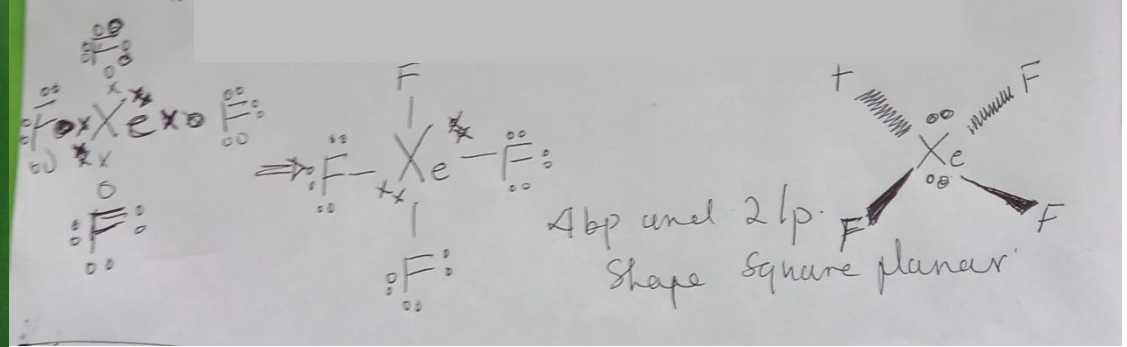 F
F Xe F
F
⇒
F
F - Xe - F
F
4bp and 2lp.
Shape Square planar
F F
Xe
F F